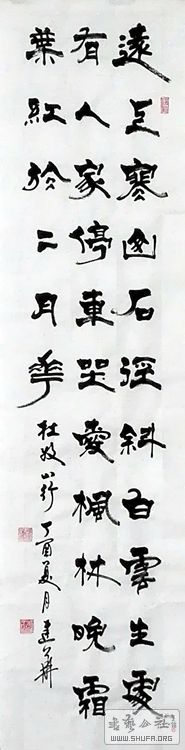 遠上寒山石徑斜白雲生處
有人家停車坐愛楓林晚霜
葉紅於二月花
杜牧山行 丁酉夏月
书艺公社
WWW.SHUFA.ORG